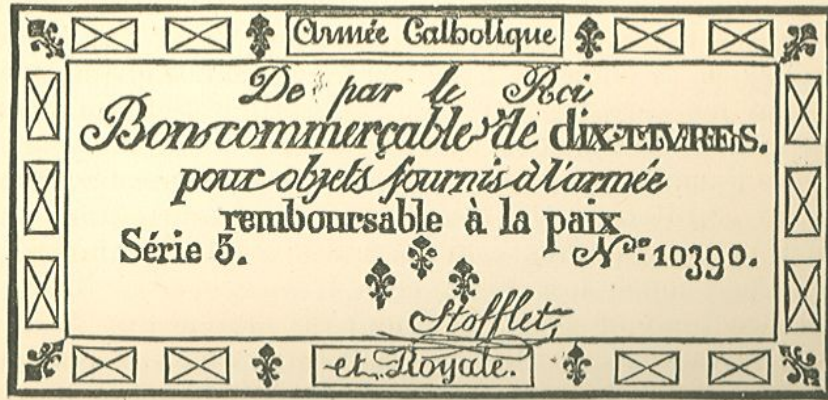 Armée Catholique
De par le Roi
Bon commerçable de dix LIVRES.
pour objets fournis à l'armée
remboursable à la paix
Série 5. Nos. 10390.
Stofflet,
et Royale.